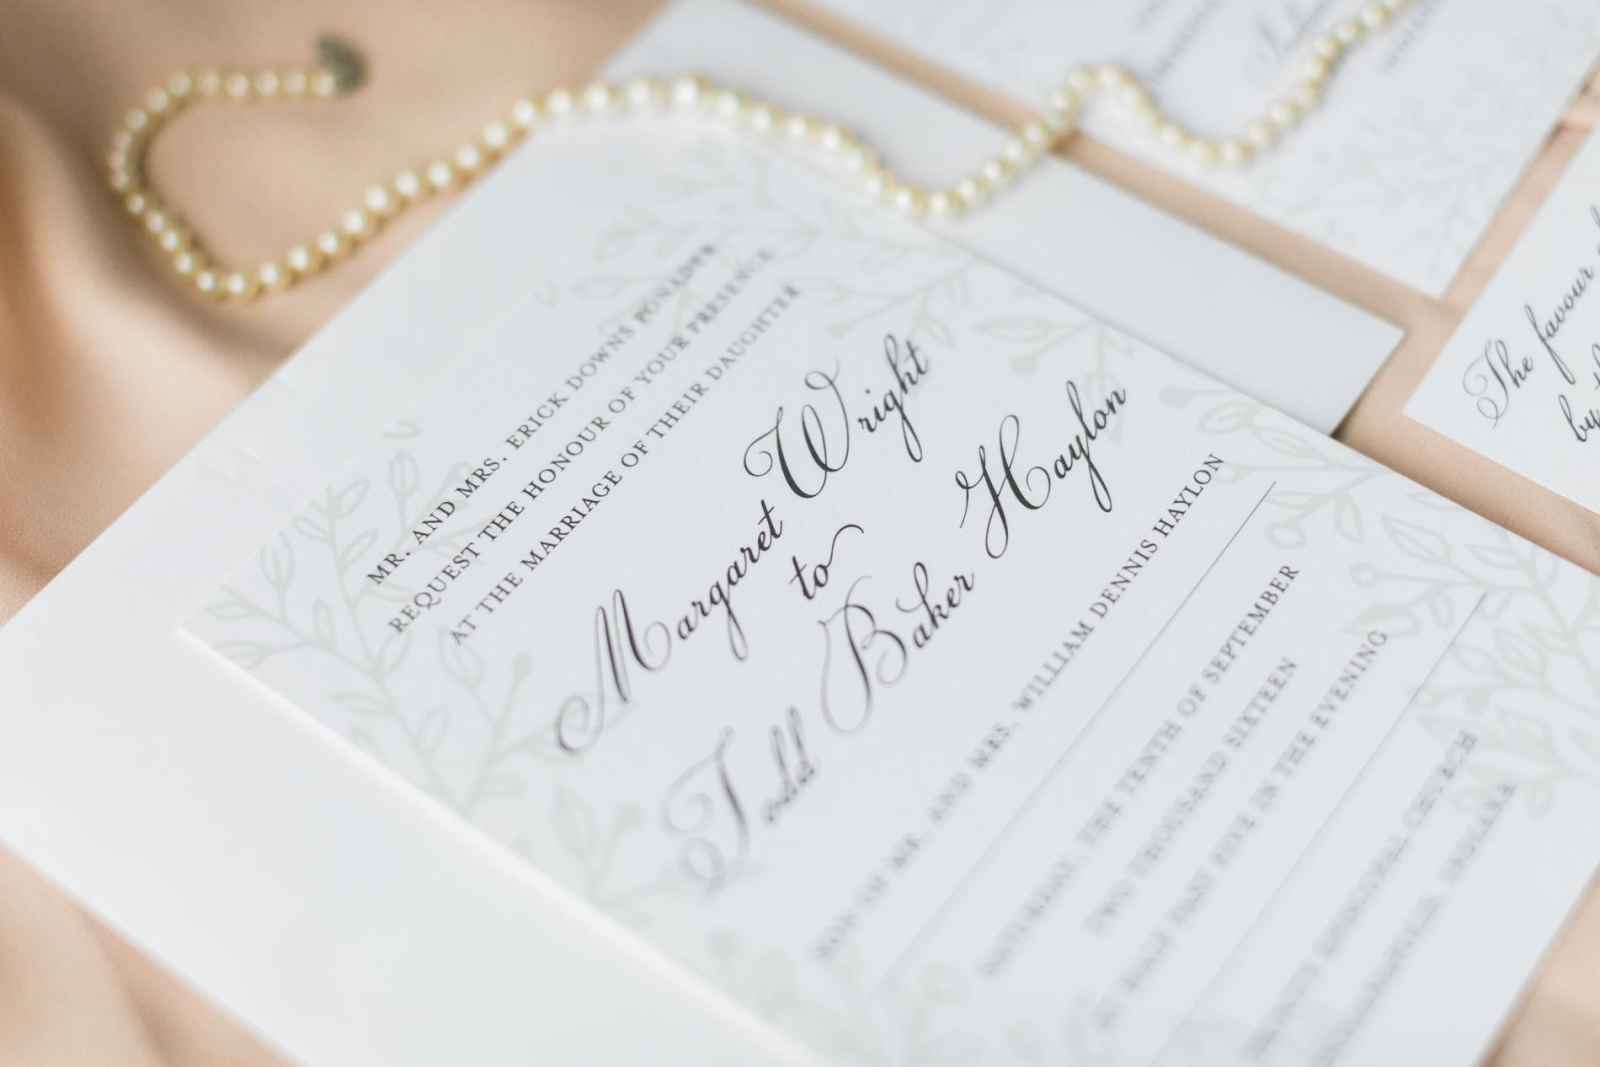 MR. AND MRS. ERICK DOWNS PONADER
REQUEST THE HONOUR OF YOUR PRESENCE
AT THE MARRIAGE OF THEIR DAUGHTER
Margaret Wright
to
Todd Baker Haylon
SON OF MR. AND MRS. WILLIAM DENNIS HAYLON
SATURDAY, THE TENTH OF SEPTEMBER
TWO THOUSAND SIXTEEN
AT HALF PAST FIVE IN THE EVENING
EPISCOPAL CHURCH
The favour
by